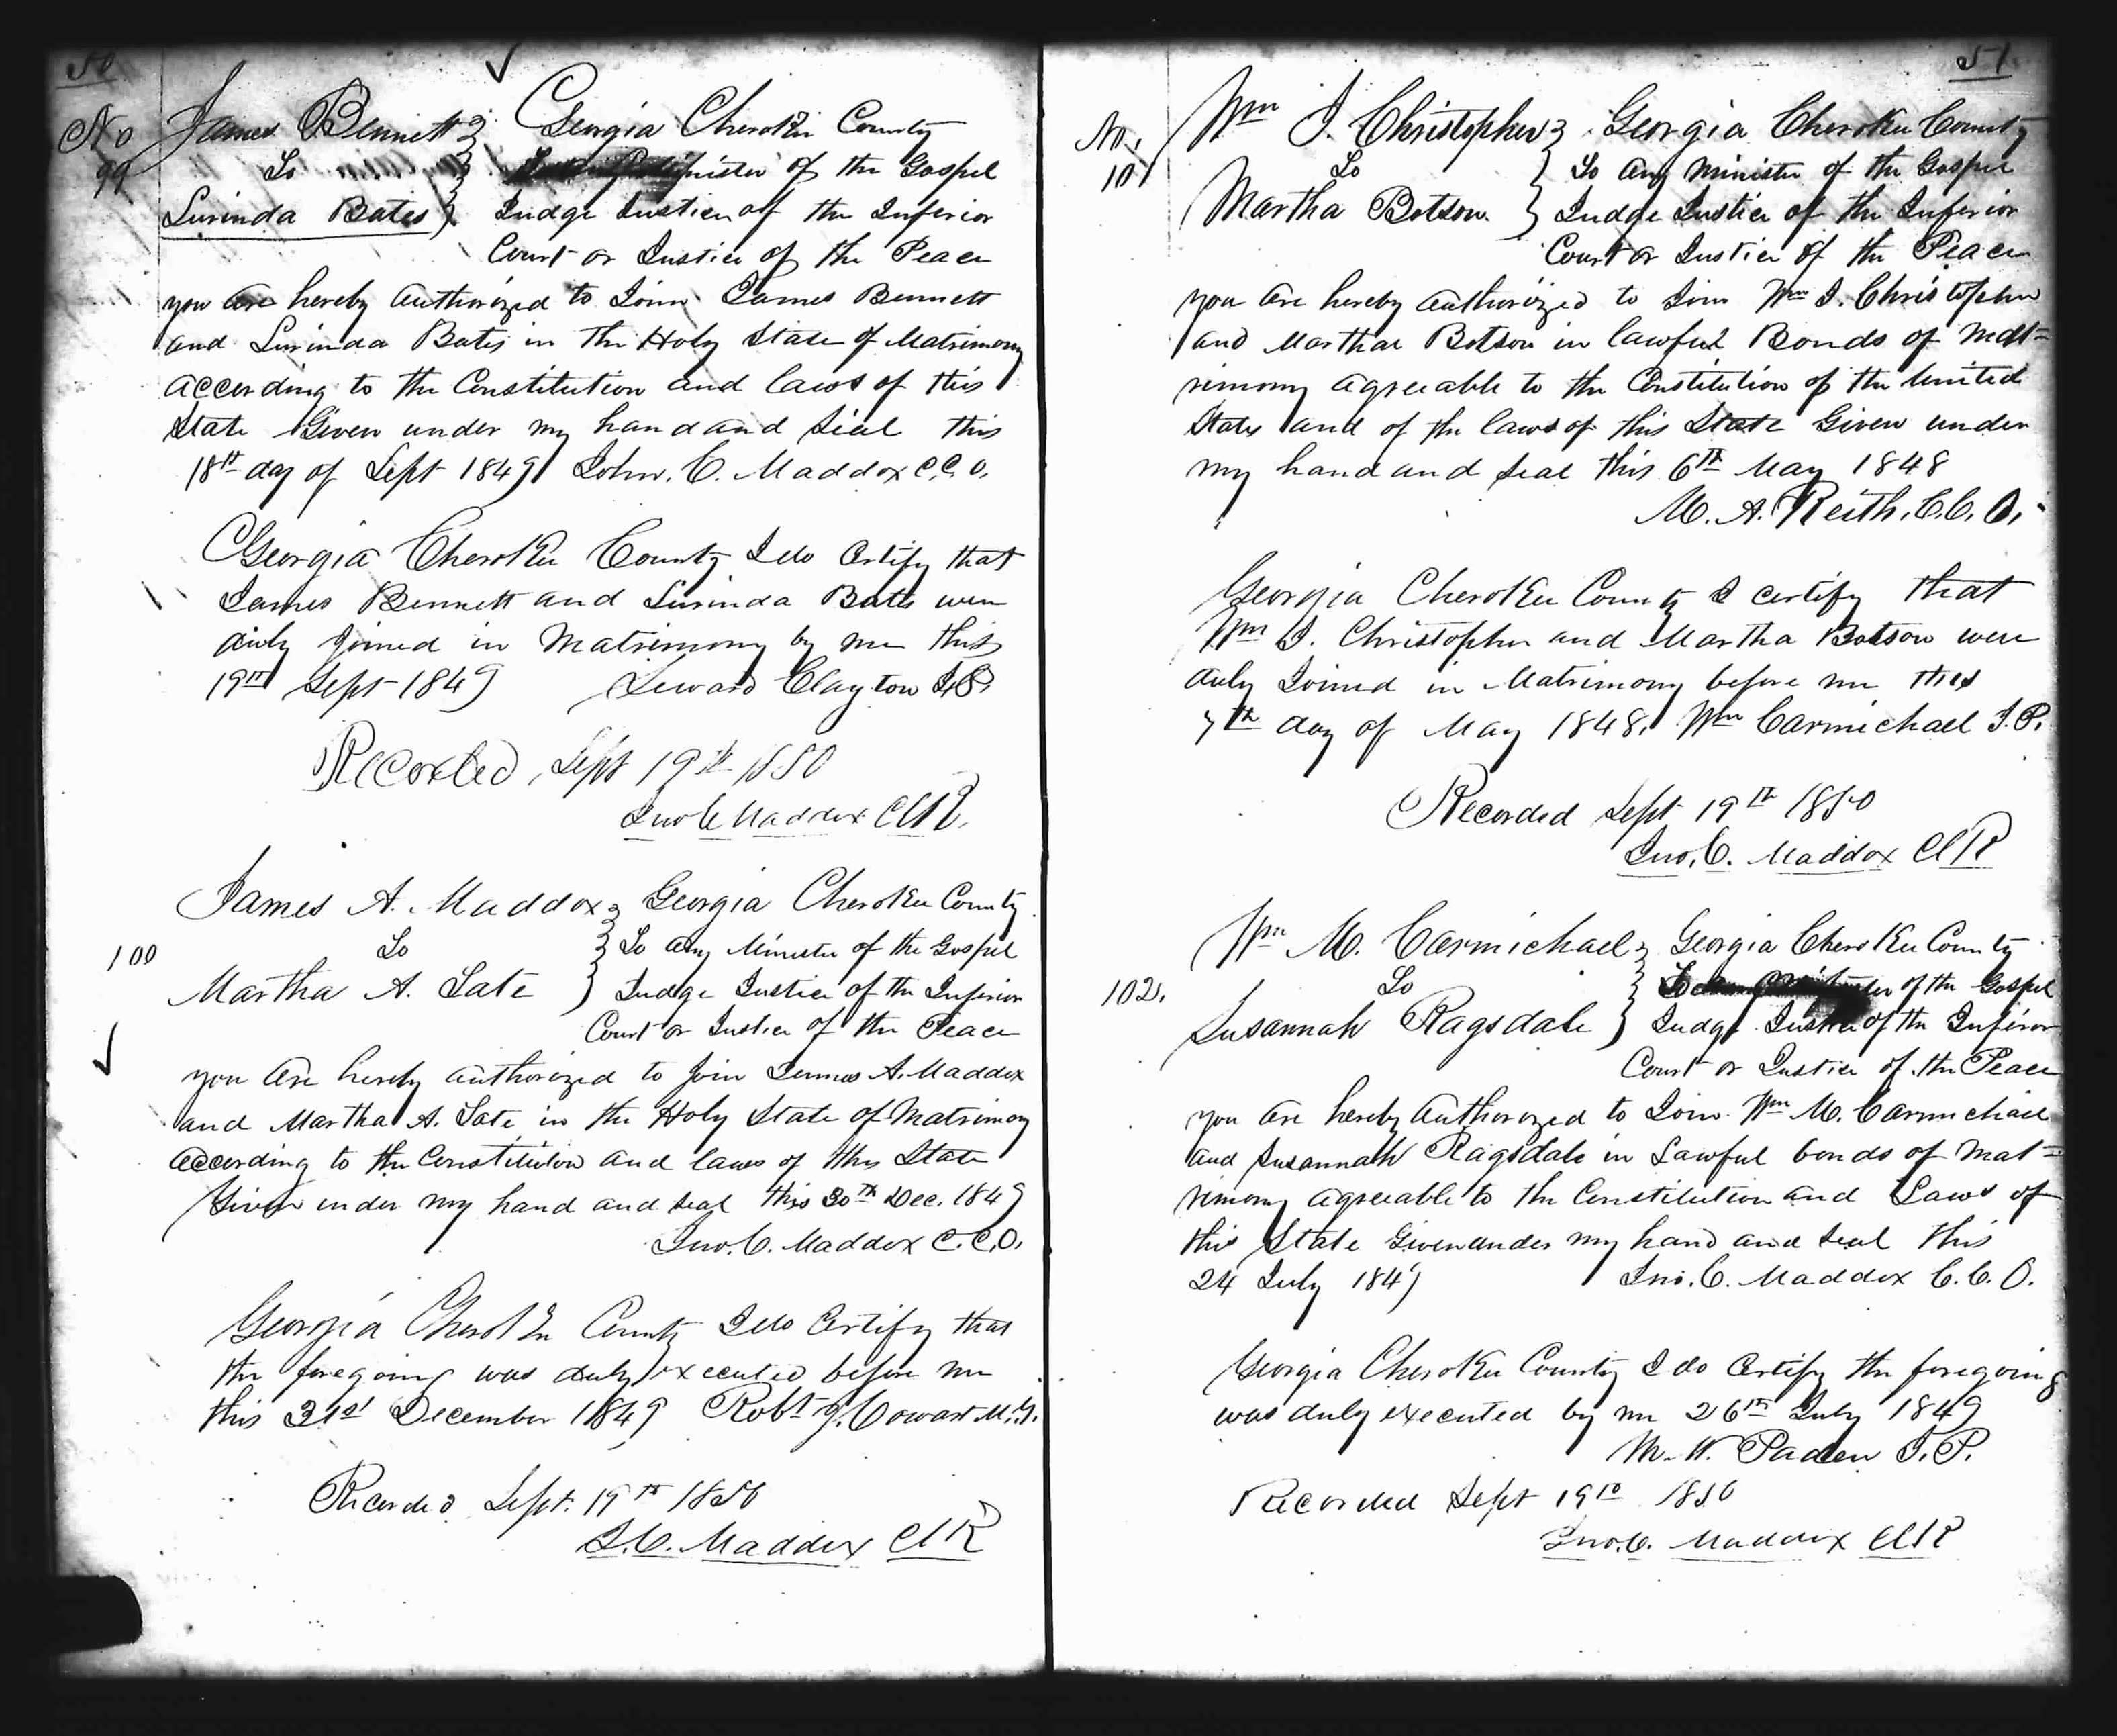 50
No 99
James Bennett } Georgia Cherokee County
To } Minister of the Gospel
Lurinda Bates } Judge Justice of the Inferior
Court or Justice of the Peace
you are hereby authorized to Join James Bennett
and Lurinda Bates in the Holy State of Matrimony
according to the Constitution and laws of this
State Given under my hand and Seal this
18th day of Sept 1849 John. C. Maddox C.C.O.
Georgia Cherokee County I do Certify that
James Bennett and Lurinda Bates were
duly Joined in Matrimony by me this
19th Sept 1849 Seward Clayton
Recorded, Sept 19th 1850
Jno C Maddox ClK.
100
James A. Maddox } Georgia Cherokee County
To } To any Minister of the Gospel
Martha A. Tate } Judge Justice of the Inferior
Court or Justice of the Peace
you are hereby authorized to Join James A. Maddox
and Martha A. Tate in the Holy State of Matrimony
according to the Constitution and laws of this State
Given under my hand and seal this 30th Dec. 1849
Jno. C. Maddox C.C.O.
Georgia Cherokee County I do Certify that
the foregoing was duly executed before me
this 31st December 1849 Robt J. Cowart M.G.
Recorded Sept. 19th 1850
J.C. Maddox ClK
51
No. 101
Wm J. Christopher } Georgia Cherokee County
To } To any Minister of the Gospel
Martha Botson } Judge Justice of the Inferior
Court or Justice of the Peace
you are hereby authorized to Join Wm J. Christopher
and Martha Botson in lawful Bonds of Mat=
rimony agreeable to the Constitution of the United
States and of the laws of this State Given under
my hand and seal this 6th May 1848
M. A. Keith, C.C.O.
Georgia Cherokee County I certify that
Wm J. Christopher and Martha Botson were
duly Joined in Matrimony before me this
7th day of May 1848. Wm Carmichael J.P.
Recorded Sept 19th 1850
Jno. C. Maddox ClK
102.
Wm M. Carmichael } Georgia Cherokee County
To } To any Minister of the Gospel
Susannah Ragsdale } Judge Justice of the Inferior
Court or Justice of the Peace
you are hereby authorized to Join Wm M. Carmichael
and Susannah Ragsdale in Lawful bonds of Mat=
rimony agreeable to the Constitution and Laws of
this State Given under my hand and seal this
24 July 1849 Jno. C. Maddox C.C.O.
Georgia Cherokee County I do Certify the foregoing
was duly executed by me 26th July 1849
M. W. Paden J.P.
Recorded Sept 19th 1850
Jno. C. Maddox ClK